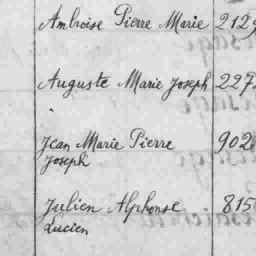 Ambroise Pierre Marie 212
Auguste Marie Joseph 227
Jean Marie Pierre 902
Joseph
Julien Alphonse 815
Lucien